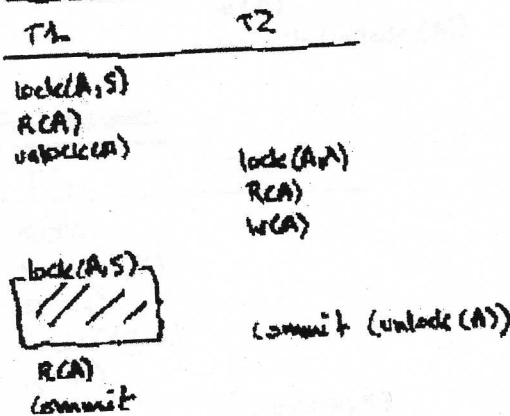 T1 T2
lock(A,S)
R(A)
unlock(A)
lock(A,X)
R(A)
W(A)
lock(A,S)
commit (unlock(A))
R(A)
commit